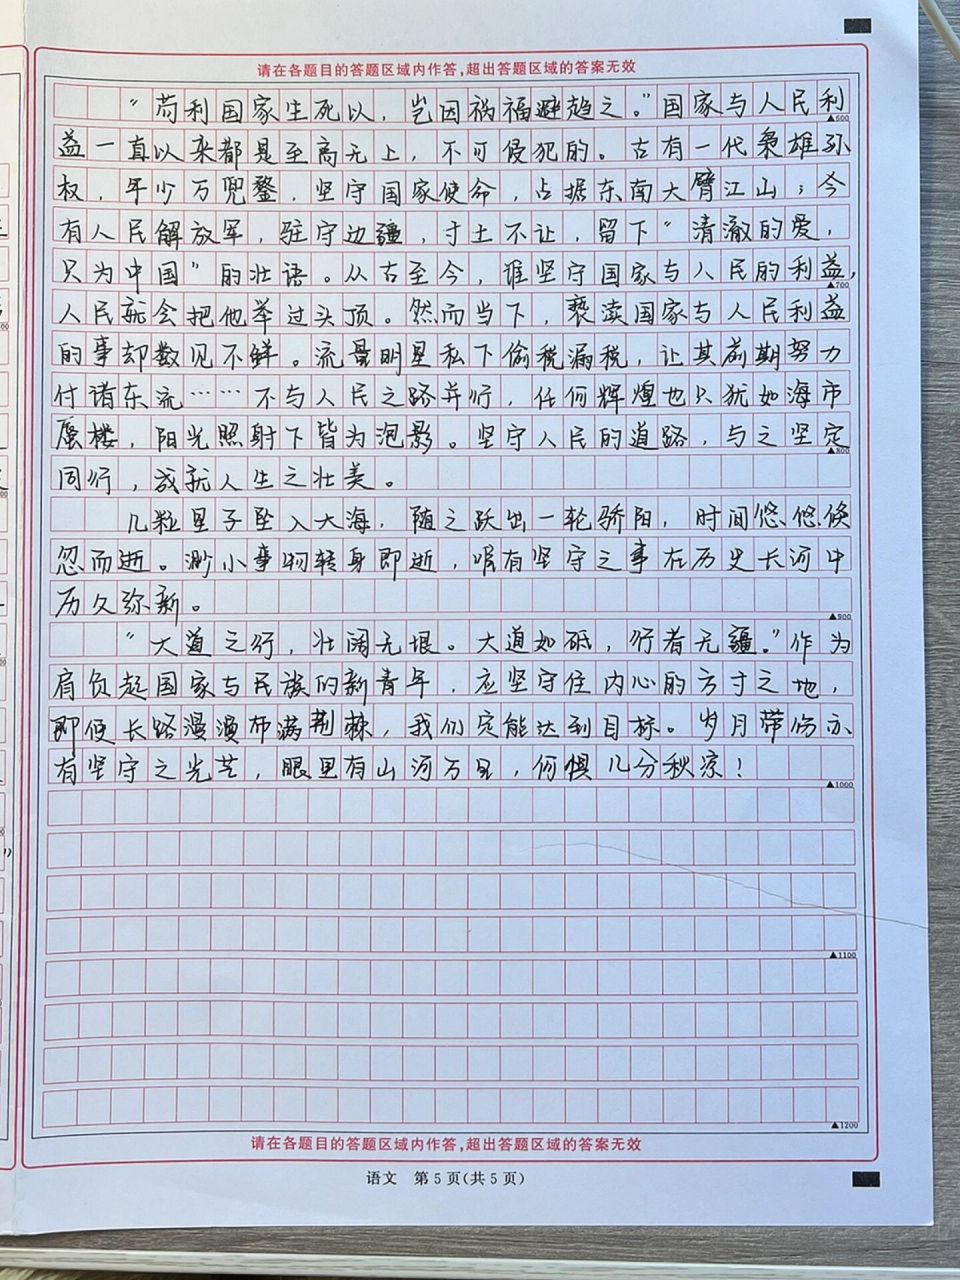 请在各题目的答题区域内作答,超出答题区域的答案无效
“苟利国家生死以，岂因祸福避趋之。”国家与人民利
▲600
益一直以来都是至高无上，不可侵犯的。古有一代枭雄孙
权，年少万兜鍪，坚守国家使命，占据东南大臂江山；今
有人民解放军，驻守边疆，寸土不让，留下“清澈的爱，
只为中国”的壮语。从古至今，谁坚守国家与人民的利益，
▲700
人民就会把他举过头顶。然而当下，亵渎国家与人民利益
的事却数见不鲜。流量明星私下偷税漏税，让其前期努力
付诸东流……不与人民之路并行，任何辉煌也只犹如海市
蜃楼，阳光照射下皆为泡影。坚守人民的道路，与之坚定
▲800
同行，成就人生之壮美。
几粒星子坠入大海，随之跃出一轮骄阳，时间悠悠倏
忽而逝。渺小事物转身即逝，唯有坚守之事在历史长河中
历久弥新。
▲900
“大道之行，壮阔无垠。大道如砥，行者无疆。”作为
肩负起国家与民族的新青年，应坚守住内心的方寸之地，
即便长路漫漫布满荆棘，我们定能达到目标。岁月带伤亦
有坚守之光芒，眼里有山河万里，何惧几分秋凉！
▲1000
▲1100
▲1200
请在各题目的答题区域内作答,超出答题区域的答案无效
语文 第5页(共5页)